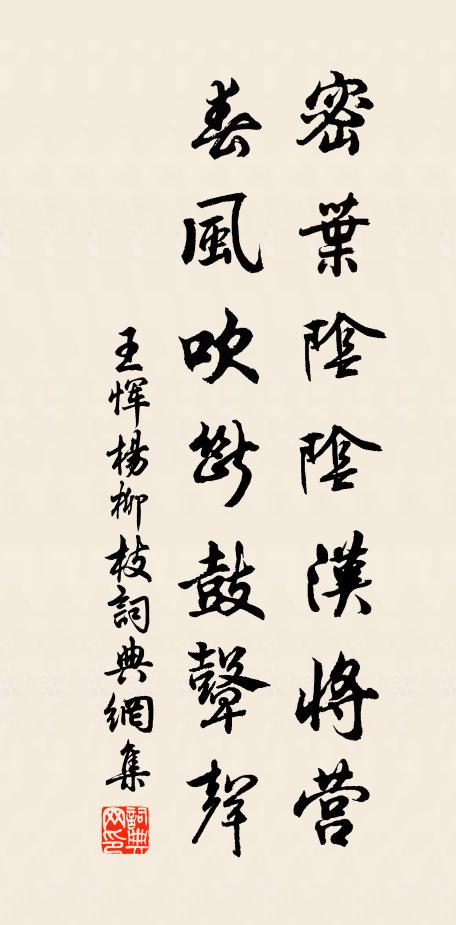 密葉陰陰漢將营
春風吹斷鼓鼙聲
王惲楊柳枝詞典網集
詞典網印